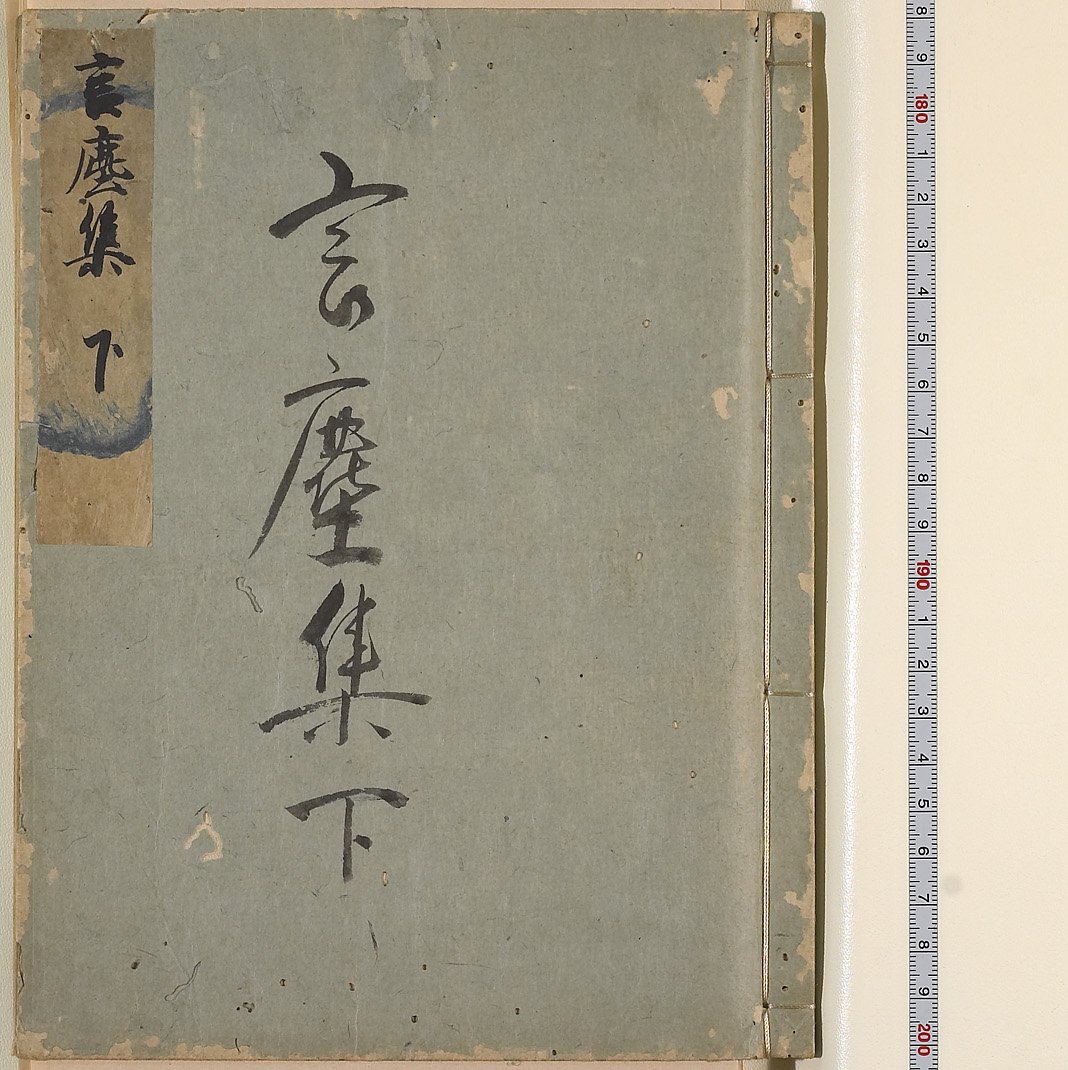 言塵集 下
言塵集下
8
9
180
1
2
3
4
5
6
7
8
9
190
1
2
3
4
5
6
7
8
9
200